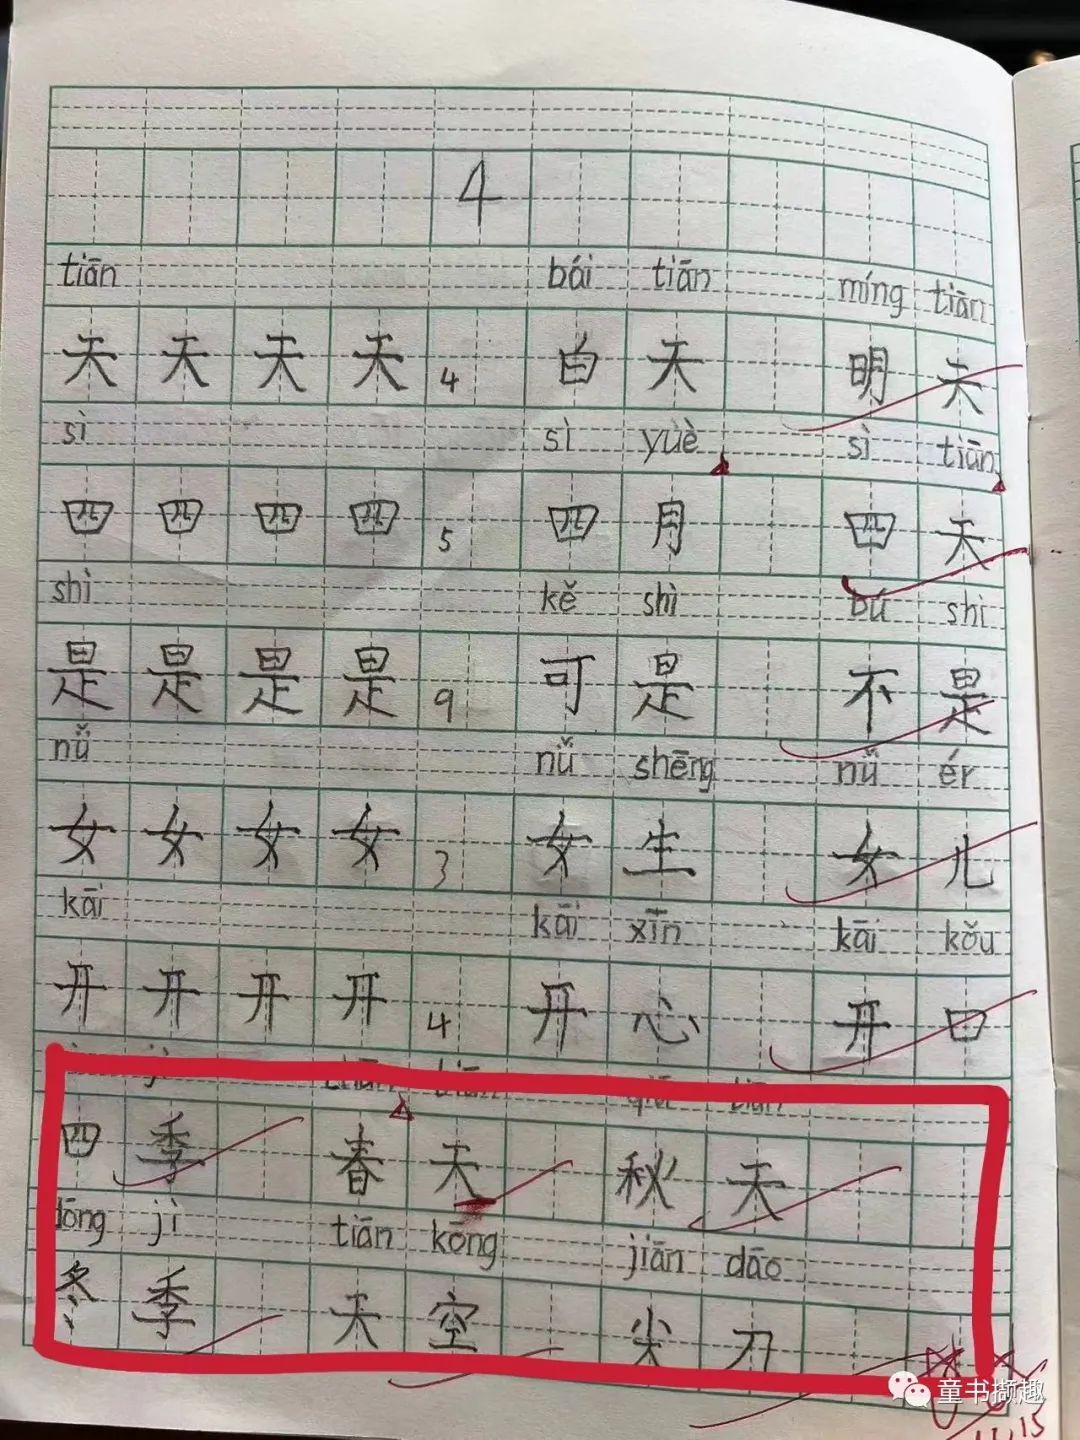 4
tiān bái tiān míng tiān
天 天 天 天 4 白 天 明 天
sì sì yuè sì tiān
四 四 四 四 5 四 月 四 天
shì kě shì bú shì
是 是 是 是 9 可 是 不 是
nǚ nǚ shēng nǚ ér
女 女 女 女 3 女 生 女 儿
kāi kāi xīn kāi kǒu
开 开 开 开 4 开 心 开 口
四 季 春 天 秋 天
dōng jì tiān kōng jiān dāo
冬 季 天 空 尖 刀
童书撷趣